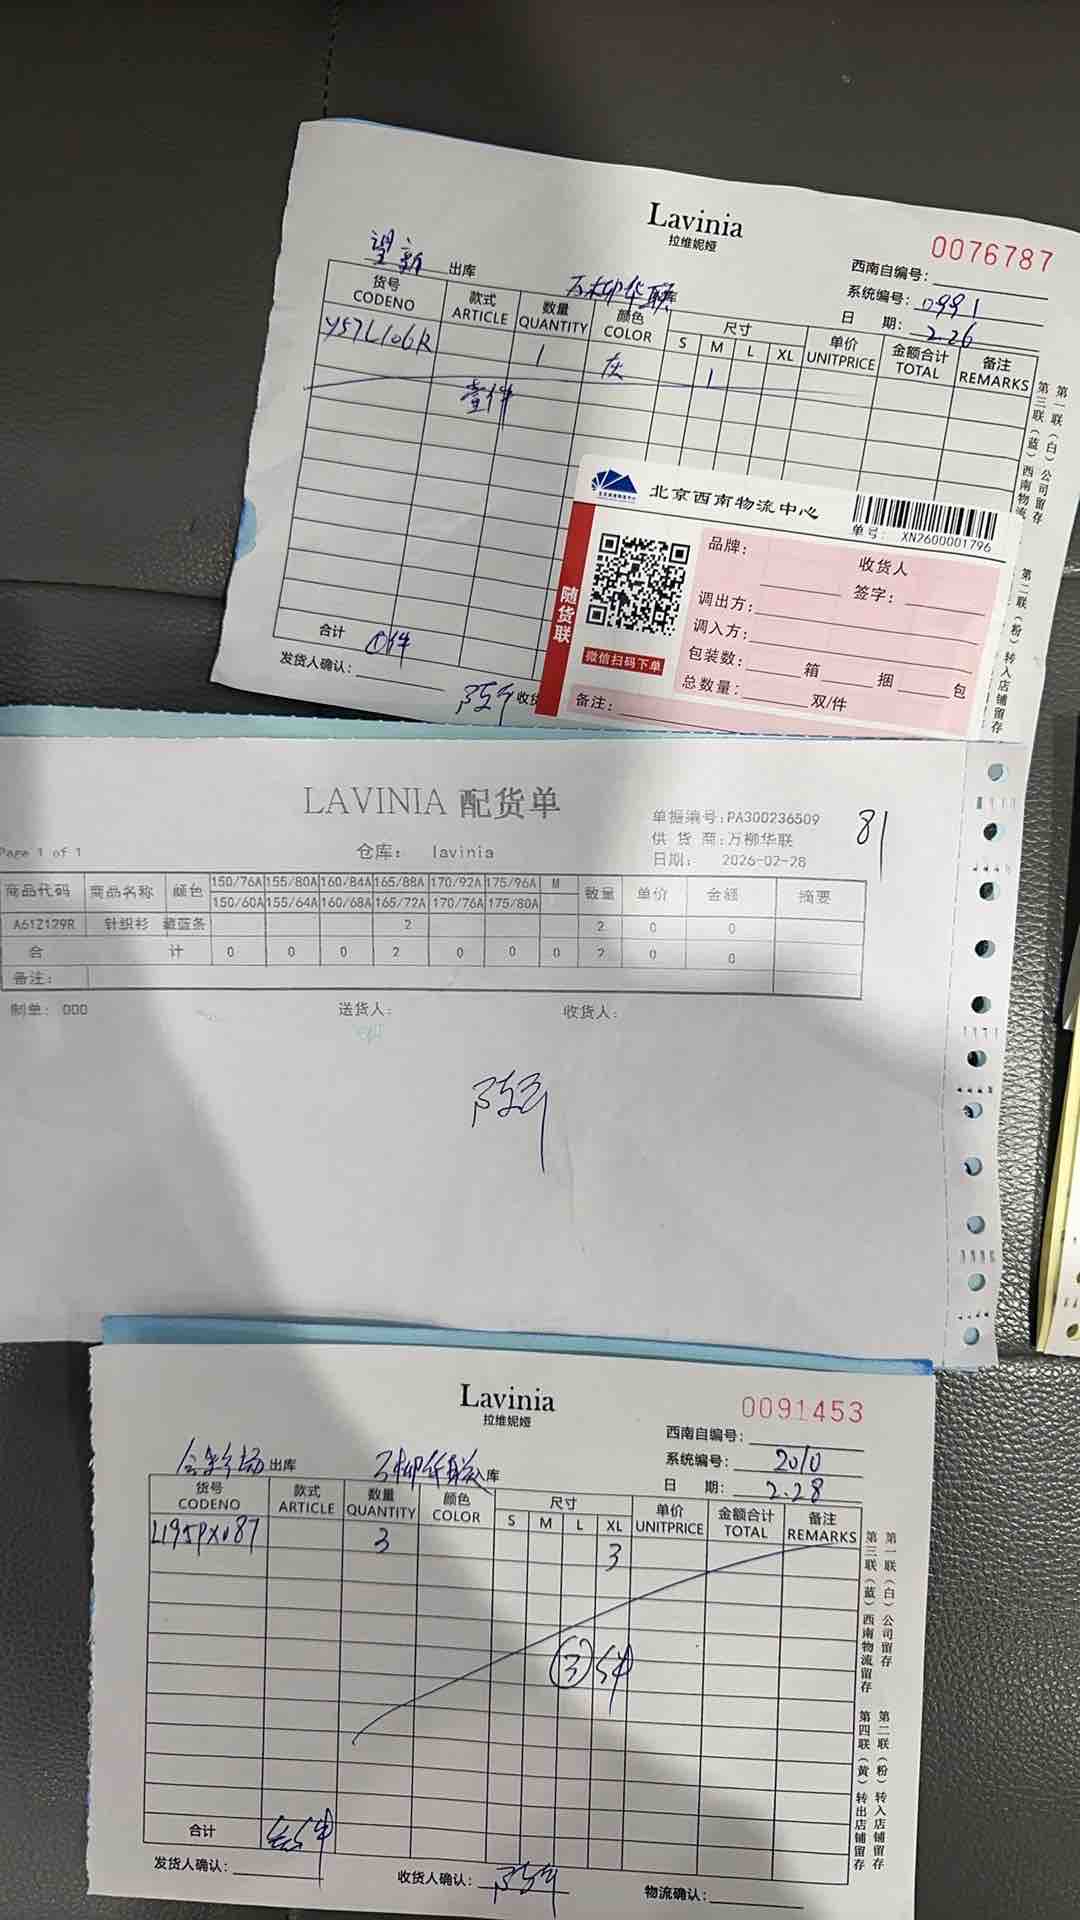 Lavinia
拉维妮娅
0076787
西南自编号：
望新 出库 万柳华联 库
系统编号：0991
日 期：2.26
货号 款式 数量 颜色 尺寸 单价 金额合计 备注
CODENO ARTICLE QUANTITY COLOR S M L XL UNITPRICE TOTAL REMARKS
Y57L106R 1 灰 1
壹件
第一联（白）公司留存
第三联（蓝）西南物流
第二联（粉）转入店铺留存
合计 ①件
发货人确认：
收货
北京西南物流中心
单号： XN2600001796
随货联
微信扫码下单
品牌： 收货人
签字：
调出方：
调入方：
包装数： 箱 捆 包
总数量： 双/件
备注：
LAVINIA 配货单
单据编号：PA300236509
81
供 货 商：万柳华联
Page 1 of 1 仓库： lavinia 日期： 2026-02-28
商品代码 商品名称 颜色 150/76A 155/80A 160/84A 165/88A 170/92A 175/96A M 数量 单价 金额 摘要
150/60A 155/64A 160/68A 165/72A 170/76A 175/80A
A61Z129R 针织衫 藏蓝条 2 2 0 0
合 计 0 0 0 2 0 0 0 2 0 0
备注：
制单： 000 送货人： 收货人：
Lavinia
拉维妮娅
0091453
西南自编号：
出库 万柳华联 入库
系统编号：2010
日 期：2.28
货号 款式 数量 颜色 尺寸 单价 金额合计 备注
CODENO ARTICLE QUANTITY COLOR S M L XL UNITPRICE TOTAL REMARKS
L195PX087 3 3
③件
第一联（白）公司留存
第三联（蓝）西南物流留存
第二联（粉）转入店铺留存
第四联（黄）转出店铺留存
合计
发货人确认： 收货人确认： 物流确认：